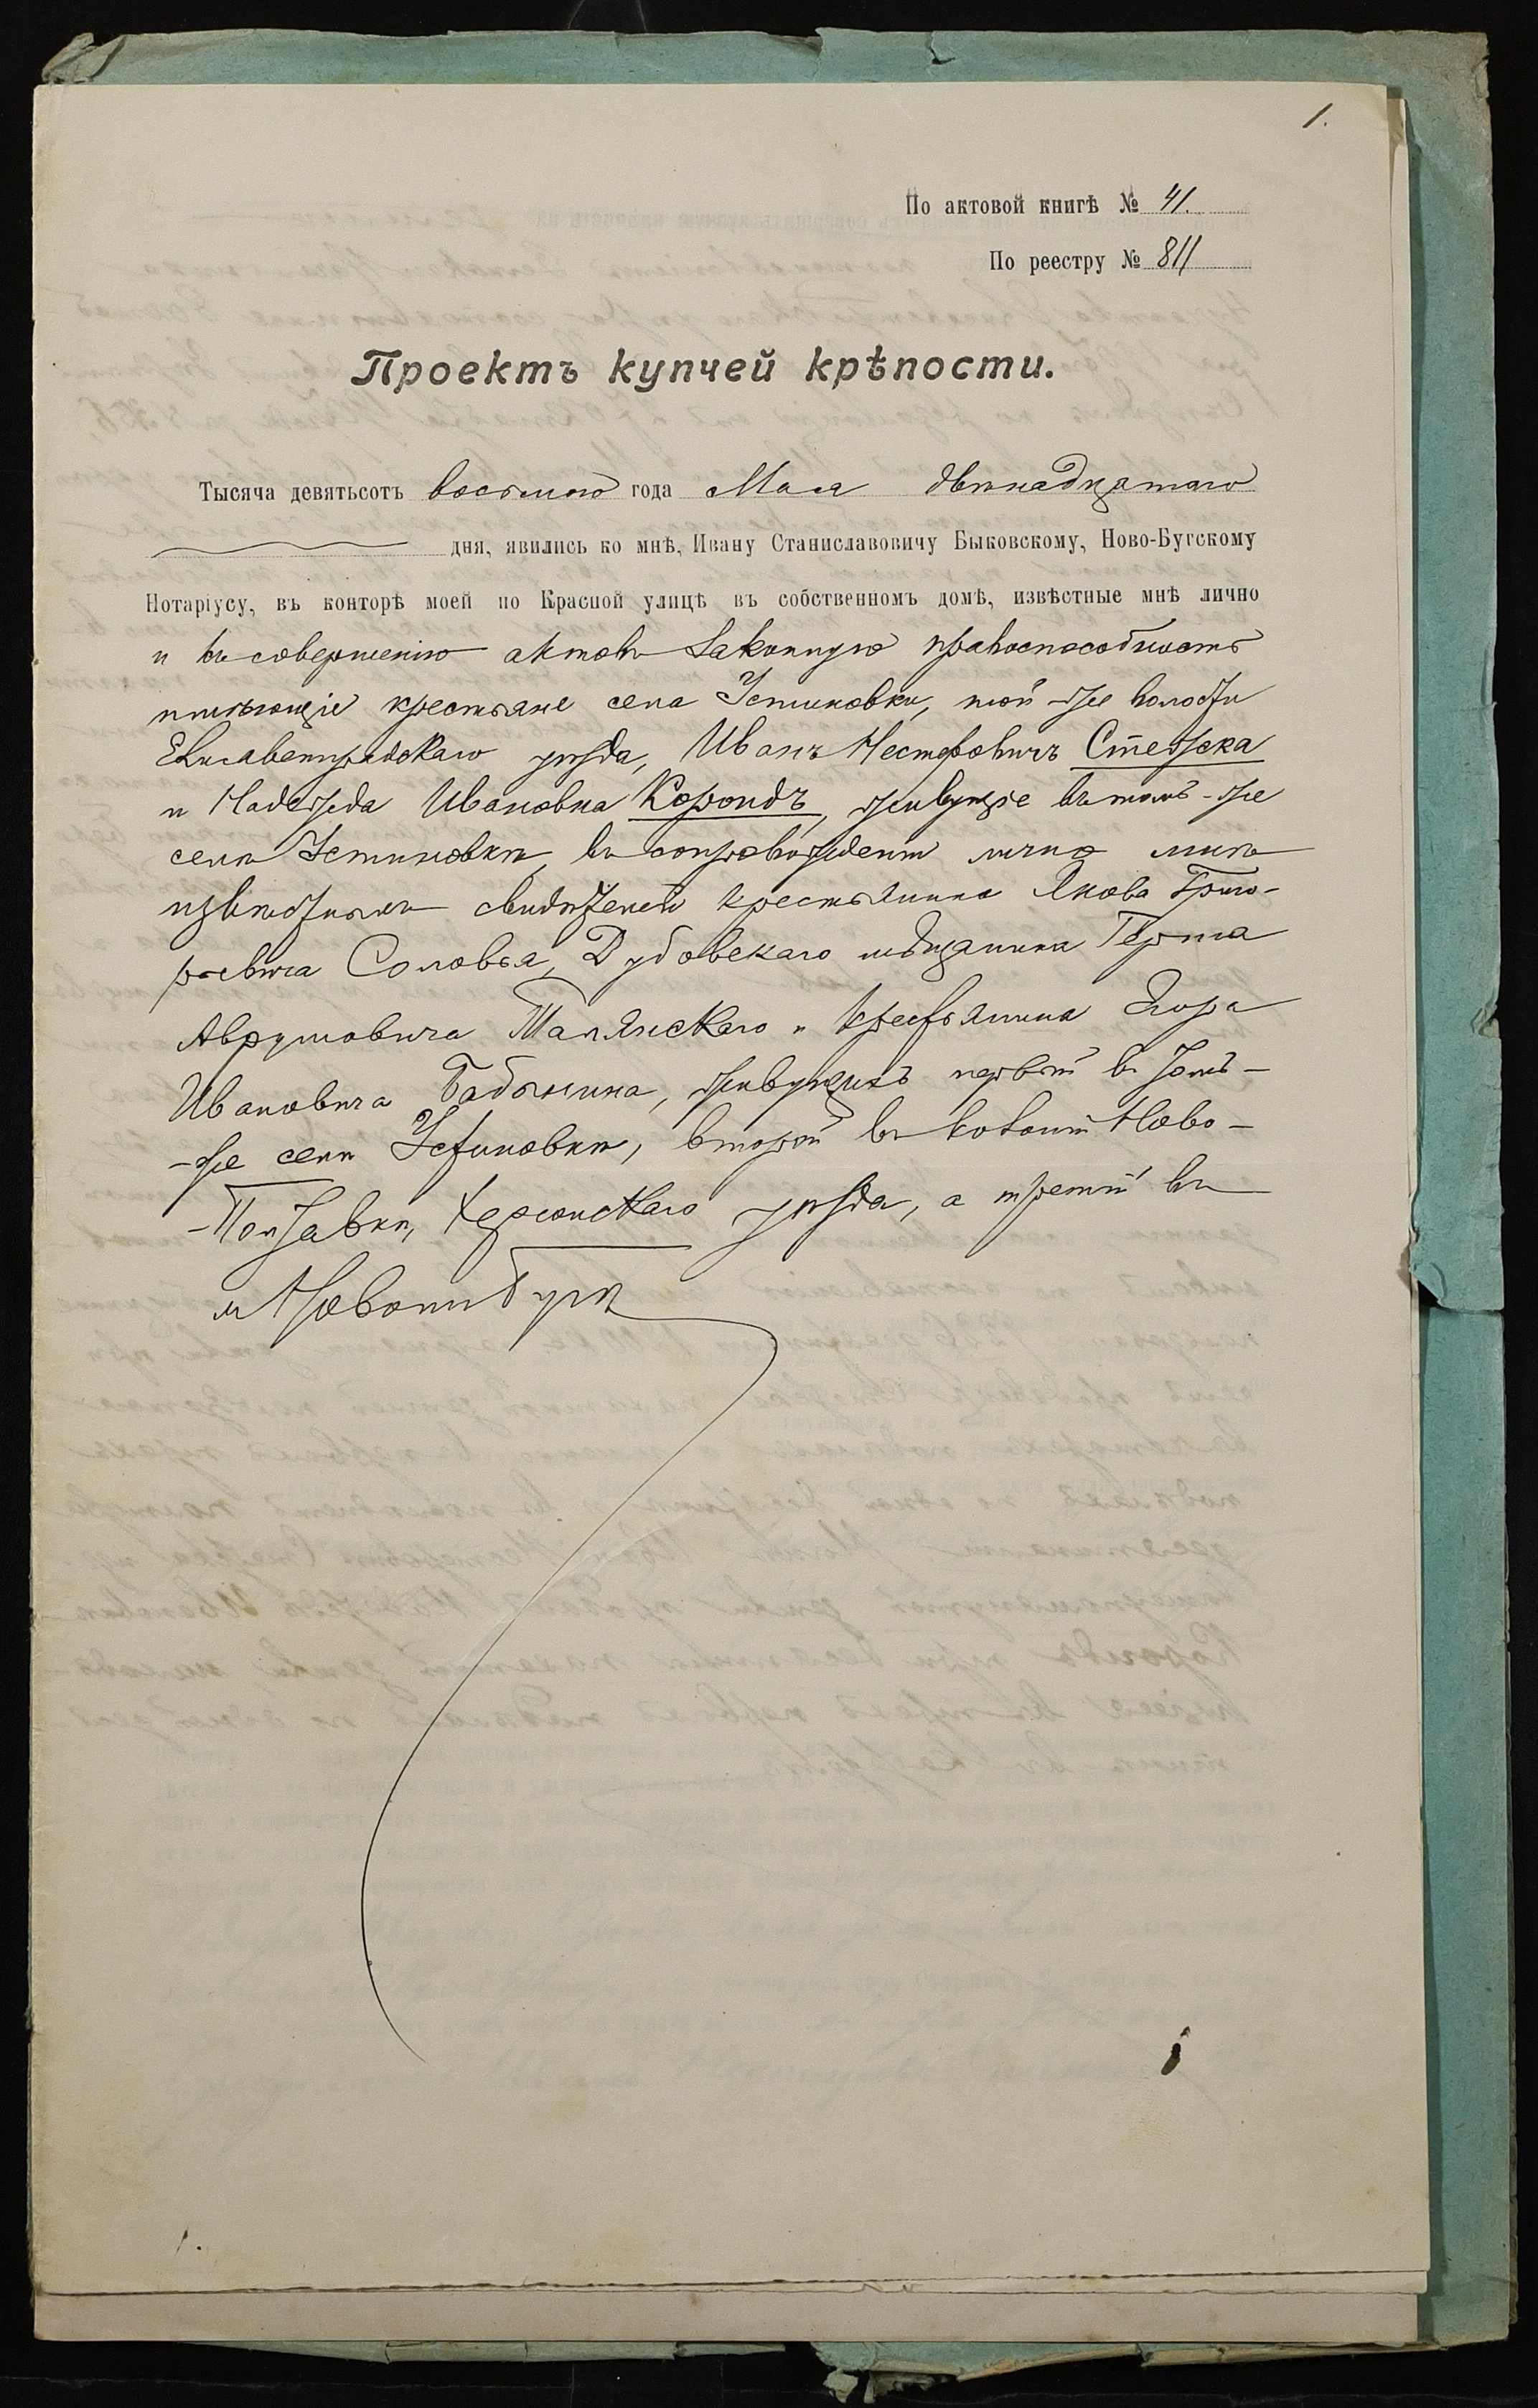 1.
По актовой книгѣ № 41.
По реестру № 811
Проектъ купчей крѣпости.
Тысяча девятьсотъ восьмого года Мая двѣнадцатаго
дня, явились ко мнѣ, Ивану Станиславовичу Быковскому, Ново-Бугскому
Нотаріусу, въ конторѣ моей по Красной улицѣ въ собственномъ домѣ, извѣстные мнѣ лично
и къ совершенію актовъ законную правоспособность
имѣющіе крестьяне села Устиновки, той-же волости
Елисаветградскаго уѣзда, Иванъ Нестеровичъ Стежка
и Надежда Ивановна Корондъ, живущіе въ томъ-же
селѣ Устиновкѣ, въ сопровожденіи лично мнѣ
извѣстныхъ свидѣтелей крестьянина Якова Григо-
рьевича Соловья, Дубовскаго мѣщанина Герша
Аврумовича Таплискаго и крестьянина Егора
Ивановича Бабынина, живущихъ первый въ томъ-
-же селѣ Устиновкѣ, второй въ колоніи Ново-
-Полтавкѣ, Херсонскаго уѣзда, а третій въ
м Новомъ Бугѣ
1.